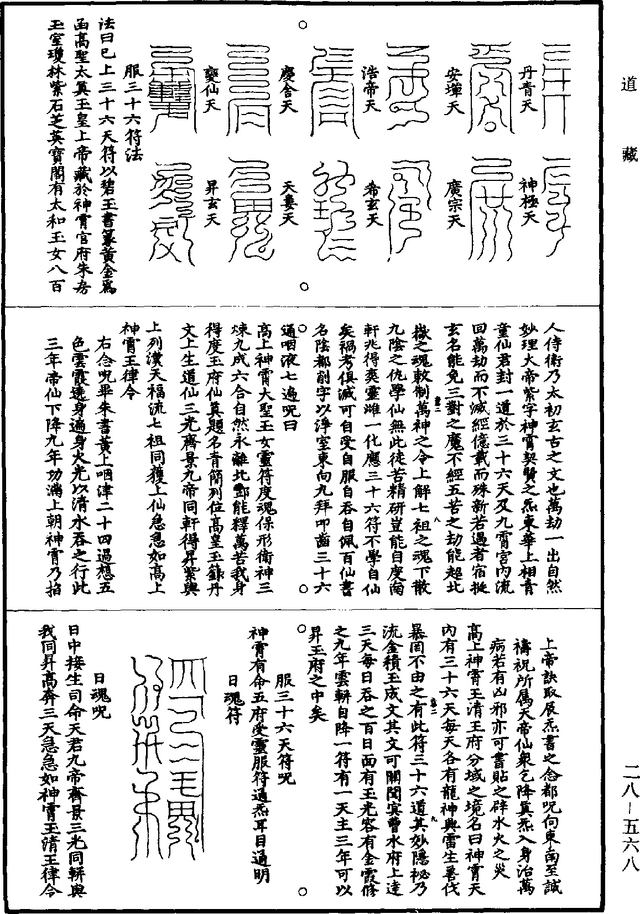 道藏
丹青天
神極天
安墠天
廣宗天
浩帝天
希玄天
慶舍天
天婁天
變仙天
昇玄天
服三十六符法
法曰已上三十六天符以碧玉書篆黃金爲
函高聖太真玉皇上帝藏於神霄宮府朱房
玉室瓊林紫石芝英寶閣有太和玉女八百
人侍衛乃太初玄古之文也萬劫一出自然
妙理大帝紫字神霄契賢之炁東華上相青
童仙君封一道於三十六天及九霄宮內流
回萬劫而不滅經億載而殊新若遇者宿挺
玄名能免三對之魔不經五苦之劫能超北
嶽之魂敕制萬神之令上解七祖之魂下散
九陰之仇學仙無此徒苦精研豈能自度南
軒兆得奕靈雌一化應三十六符不學自仙
矣禍考俱滅可自受自服自吞自佩百仙書
名陰都削字以淨室東向九拜叩齒三十六
通咽液七遍呪曰
高上神霄大聖玉女靈符度魂保形衛神三
煉九成六合自然永離北酆能釋萬苦我身
得度玉府仙真題名青簡列位高皇玉籙丹
文上生道仙三光齊景九帝同軒得昇紫輿
上列漢天福流七祖同獲上仙急急如高上
神霄玉律令
右念呪畢朱書黃上咽津二十四過想五
色雲霞遶身遍身火光以清水吞之行此
三年帝仙下降九年功滿上朝神霄乃掐
上帝訣取辰炁書之念都呪向東南至誠
禱祝所属天帝仙衆乞降真炁入身治萬
病若有凶邪亦可書貼之辟水火之災
高上神霄玉清王府分域之境名曰神霄天
內有三十六天每天各有龍神興雷生暑伐
暴罔不由之有此符三十六道其妙隱祕乃
流金積玉成文其文可關閱冥曹水府上達
三天每日吞之百日面有玉光容有金霞修
之九年雲軿自降一符有一天主三年可以
昇玉府之中矣
服三十六天符呪
神霄有命五府受靈服符通炁耳目通明
日魂符
日魂呪
日中接生司命天君九帝齊景三光同軿與
我同昇高奔三天急急如神霄玉清王律令
二八－五六八